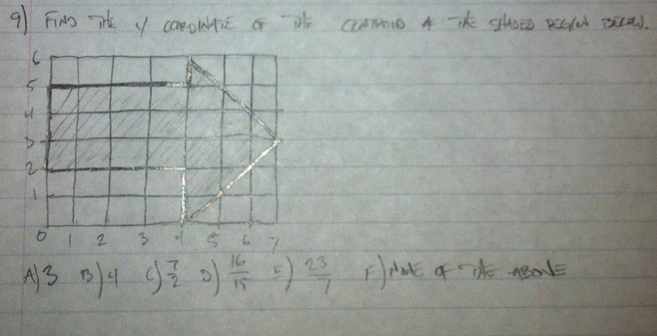 9) FIND THE Y COORDINATE OF THE CENTROID OF THE SHADED REGION BELOW.
6
5
4
3
2
1
0 1 2 3 4 5 6 7
A) 3 B) 4 C) 7/2 D) 16/15 E) 23/7 F) NONE OF THE ABOVE